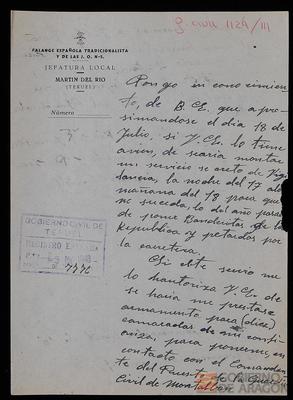 G. Civil 1129/111
FALANGE ESPAÑOLA TRADICIONALISTA
Y DE LAS J. O. N-S.
JEFATURA LOCAL
MARTIN DEL RIO
(TERUEL)
Número
Pongo en conocimien
to, de B. E. que apro-
simandose el dia 18 de
Julio, si V. E. lo tiene
avien, desearia montar
un servicio secreto de Vigi
lancia, la noche del 17 al a
mañana del 18 para que
no suceda, lo del año pasado
de poner Banderitas de la
Republica y petardos por
la carretera.
Si este servicio me
lo hautoriza V. E. de
searia me prestase
armamento para (diez)
camaradas de mi confi
anza, para ponerme en
contacto con el Comandan
te del Puesto de la Guardia
Civil de Montalban
GOBIERNO CIVIL DE
TERUEL
REGISTRO ENTRADA
7770
GOBIERNO
DE ARAGON